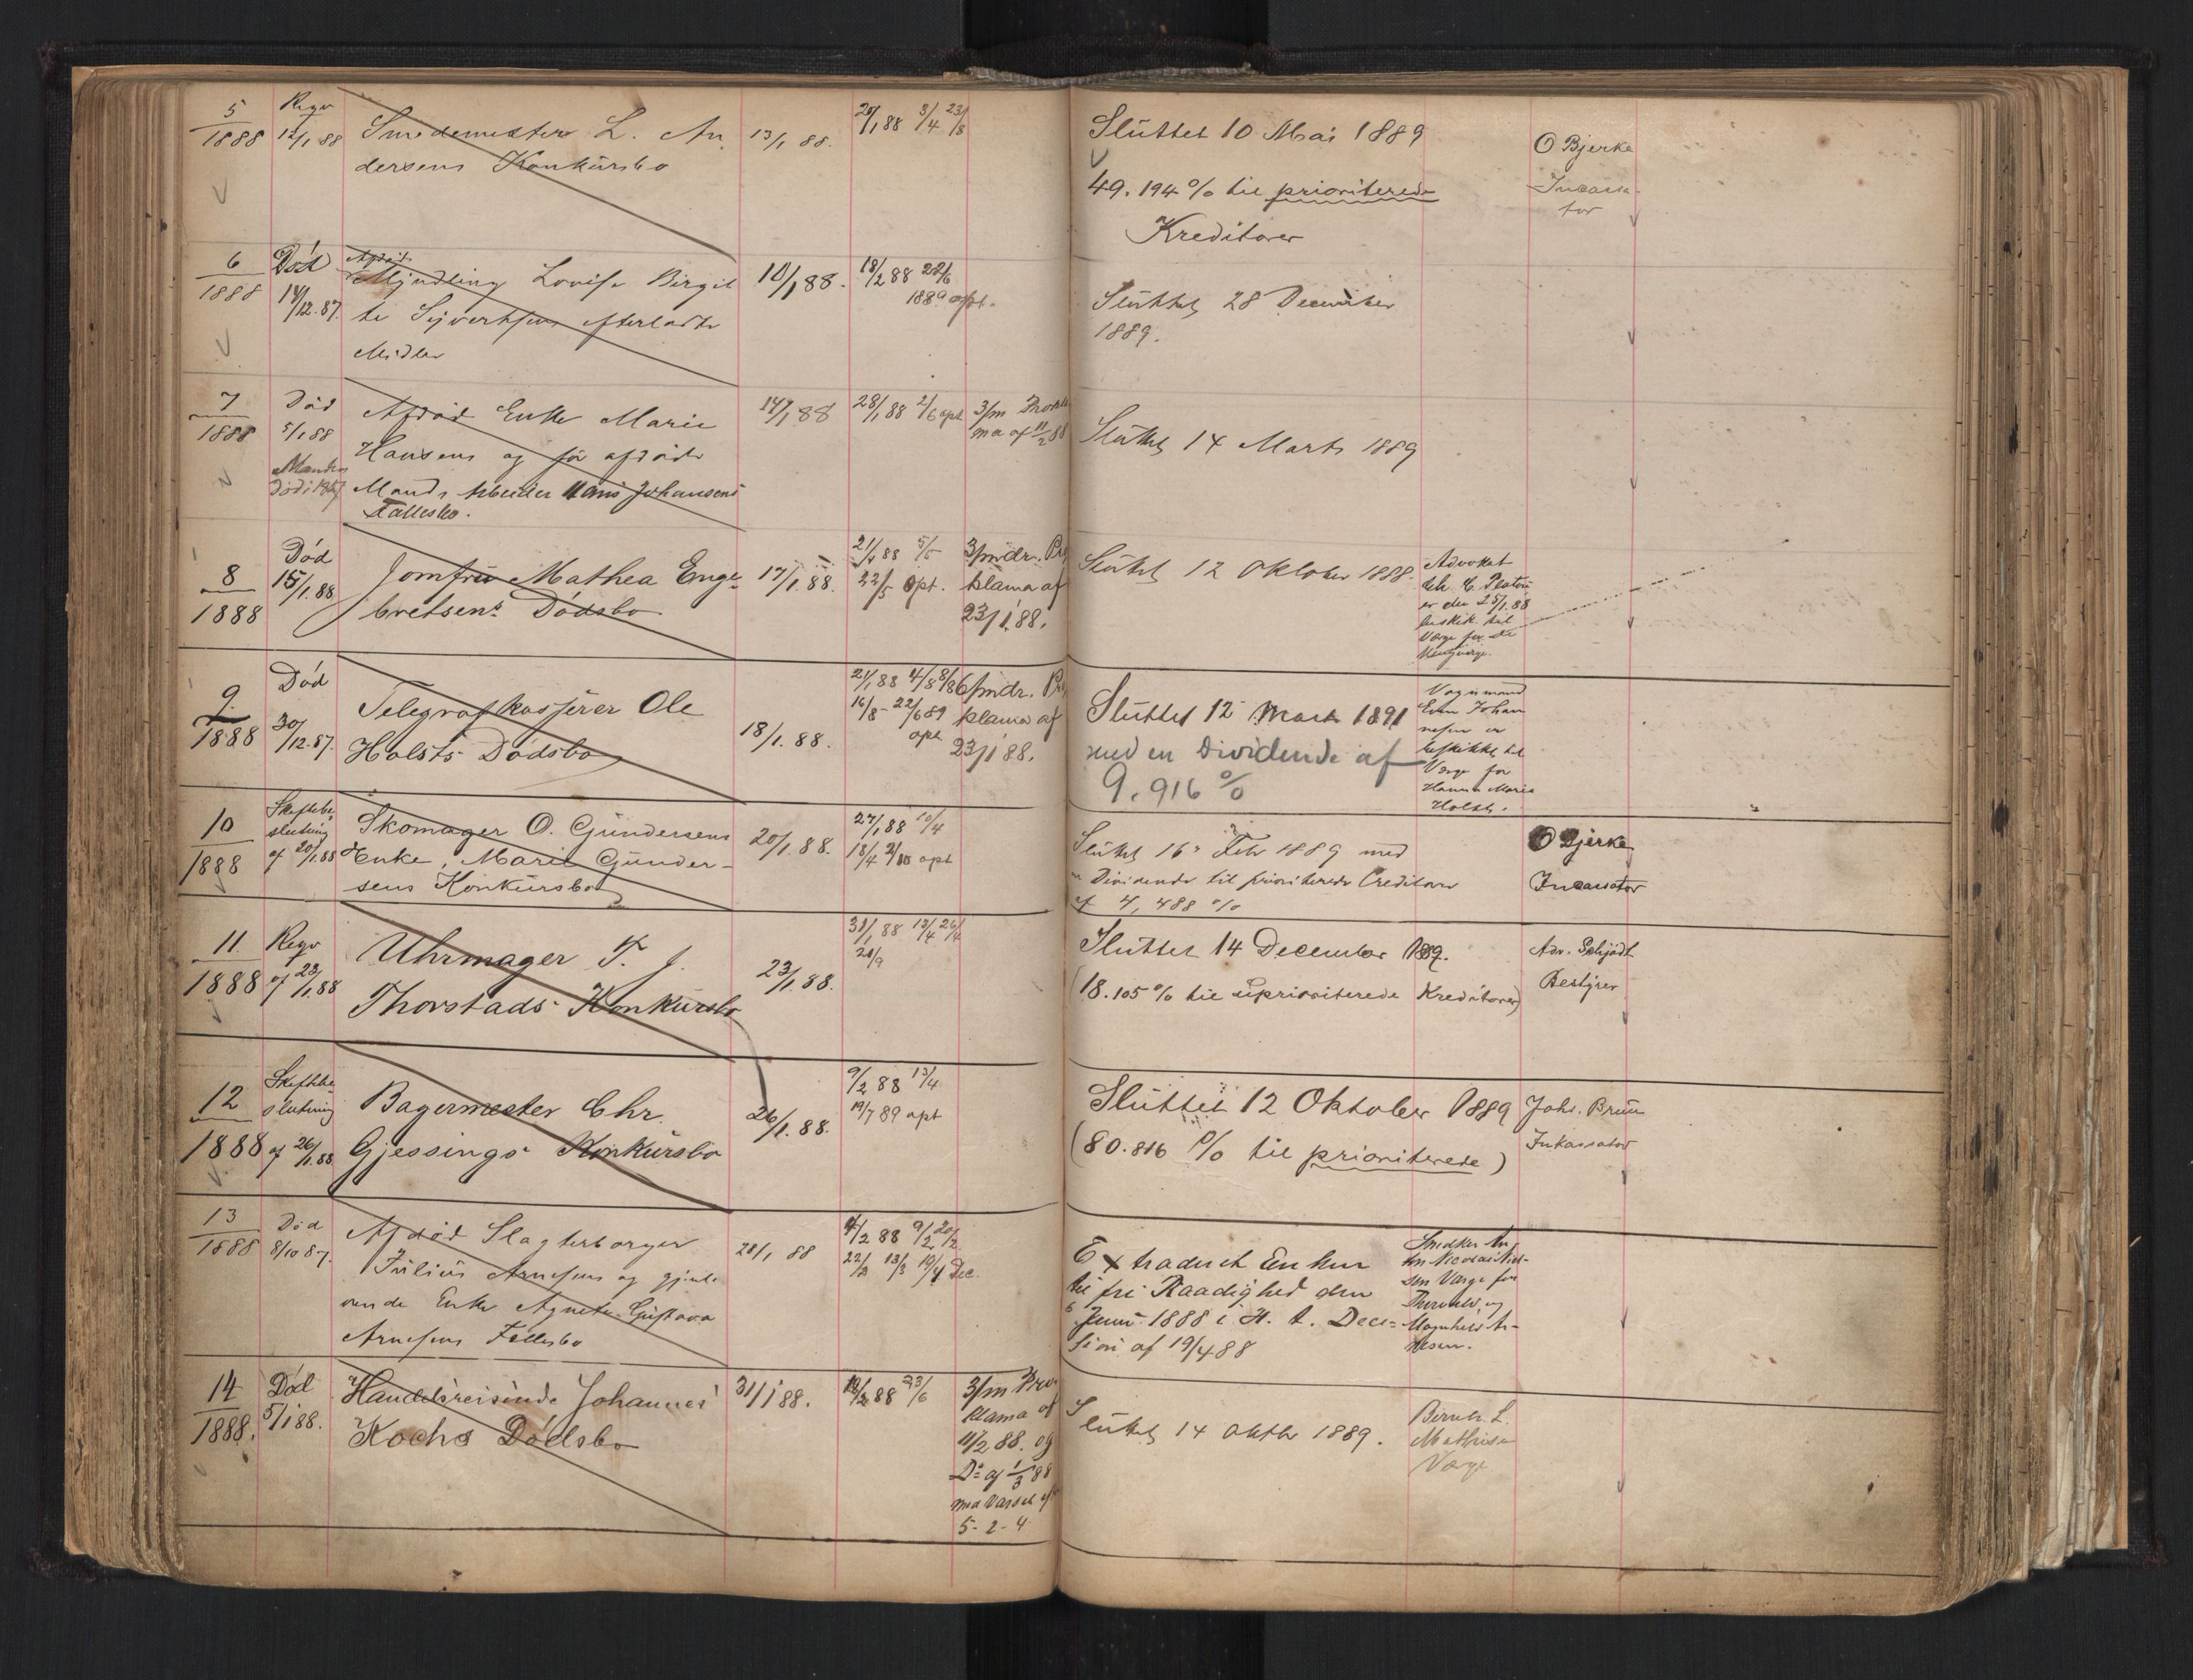 5
1888
Regv
12/1 88
Smedemester L. An
dersens Konkursbo
13/1 88.
20/1 88 3/4 23/8
Sluttet 10 Mai 1889
49.194 % til prioriterede
Kreditorer
O Bjerke
Incassa-
tor
6
1888
Død
14/12.87.
Afdøde
Myndling Lovise Birgit
te Syvertsens efterladte
Midler
10/1 88.
18/2 88 22/6
1889 opt.
Sluttet 28 December
1889.
7
1888
Død
5/1 88
Manden
død i 1867
Afdød Enke Marie
Hansens og før afdøde
Mands Arbeider Hans Johansens
Fællesbo.
14/1 88
28/1 88 2/6 opt
3/m Prokla
ma af 11/2 88
Sluttet 14 Marts 1889
8
1888
Død
15/1.88
Jomfru Mathea Enge
bretsens Dødsbo
17/1.88.
21/1 88 5/5
22/5 opt.
3/mdr. Pro
klama af
23/1 88.
Sluttet 12 Oktober 1888.
Advokat
er den 25/1.88
beskik. til
Værge for
9.
1888
Død
30/12.87.
Telegrafkasserer Ole
Holsts Dødsbo
18/1.88.
21/1 88 4/8 8/8
16/8 - 22/6 89
opt.
6/mdr. Pro
klama af
23/1 88.
Sluttet 12 Marts 1891
med en Dividende af
9.916 %
Vognmand
Even Johan
nesen er
beskikket til
Værge for
Hanna Marie
Holst.
10
1888
Skiftebe
slutning
af 20/1.88
Skomager O. Gundersens
Enke, Marie Gunder-
sens Konkursbo
20/1.88.
27/1 88 10/4
18/4 2/10 opt
Sluttet 16 Febr 1889 med
en Dividende til prioriterede Creditorer
af 4,488 %
O Bjerke
Incassator
11
1888
Regv
af 23/1.88
Uhrmager T. J.
Thorstads Konkursbo
23/1.88.
31/1 88 13/4 26/4
20/9
Sluttet 14 December 1889.
(18.105 % til uprioriterede Kreditorer)
Adv. Schjødt
Bestyrer
12
1888
Skiftebe
slutning
af 26/1.88
Bagermester Chr.
Gjessings Konkursbo
26/1.88.
9/2 88 13/4
19/7 89 opt
Sluttet 12 Oktober 1889
(80.816 % til prioriterede)
Johs. Bruun
Inkassator
13
1888
Død
8/10 87.
Afdød Slagterborger
Julius Arnesens og gjenle
vende Enke Agnete Gustava
Arnesens Fællesbo
28/1 88
4/2 88 9/2 20/2
22/2 13/3 19/4 Dec.
Extraderet Enken
til fri Raadighed den
6 Juni 1888 i H. t. Deci=
sion af 19/4 88
Snedker An
ton Nicolai Niel-
sen Værge for
Thorvald og
Magnhild Ar-
nesen.
14
1888.
Død
5/1 88.
Handelsreisende Johannes
Kochs Dødsbo
31/1 88.
10/2 88 23/6
3/m Pro
klama af
11/2 88. og
Do af 1/3 88
med Varsel af
5-2-4
Sluttet 14 Oktbr 1889.
Bernh. L.
Mathisen
Værge